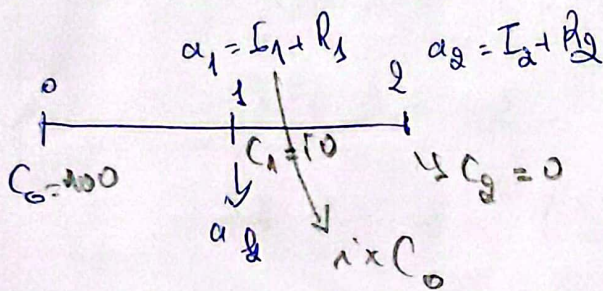 a₁ = I₁ + R₁ a₂ = I₂ + R₂
0 1 2
C₀ = 100 C₁ = 50 C₂ = 0
a
i × C₀